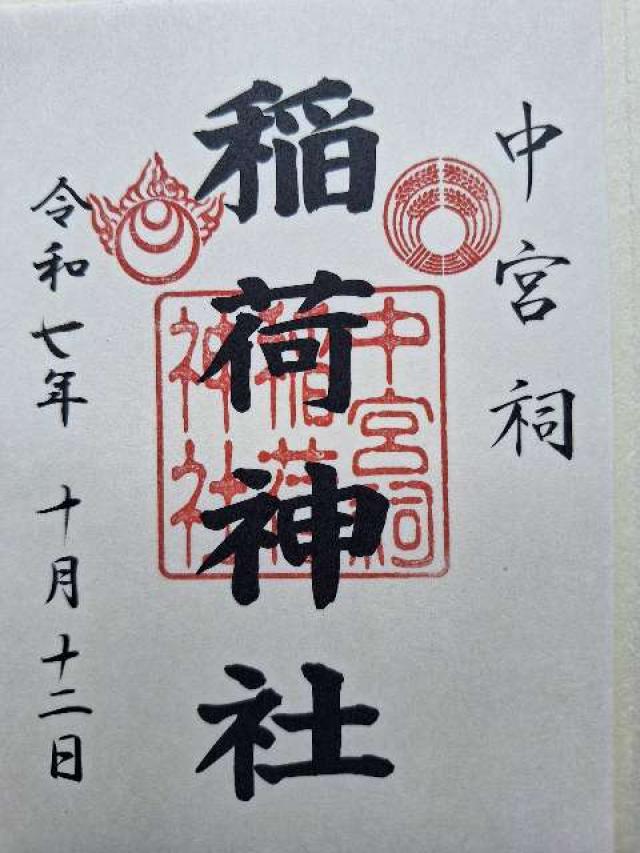 中宮祠
稲荷神社
中宮祠
稲荷
神社
令和七年 十月十二日